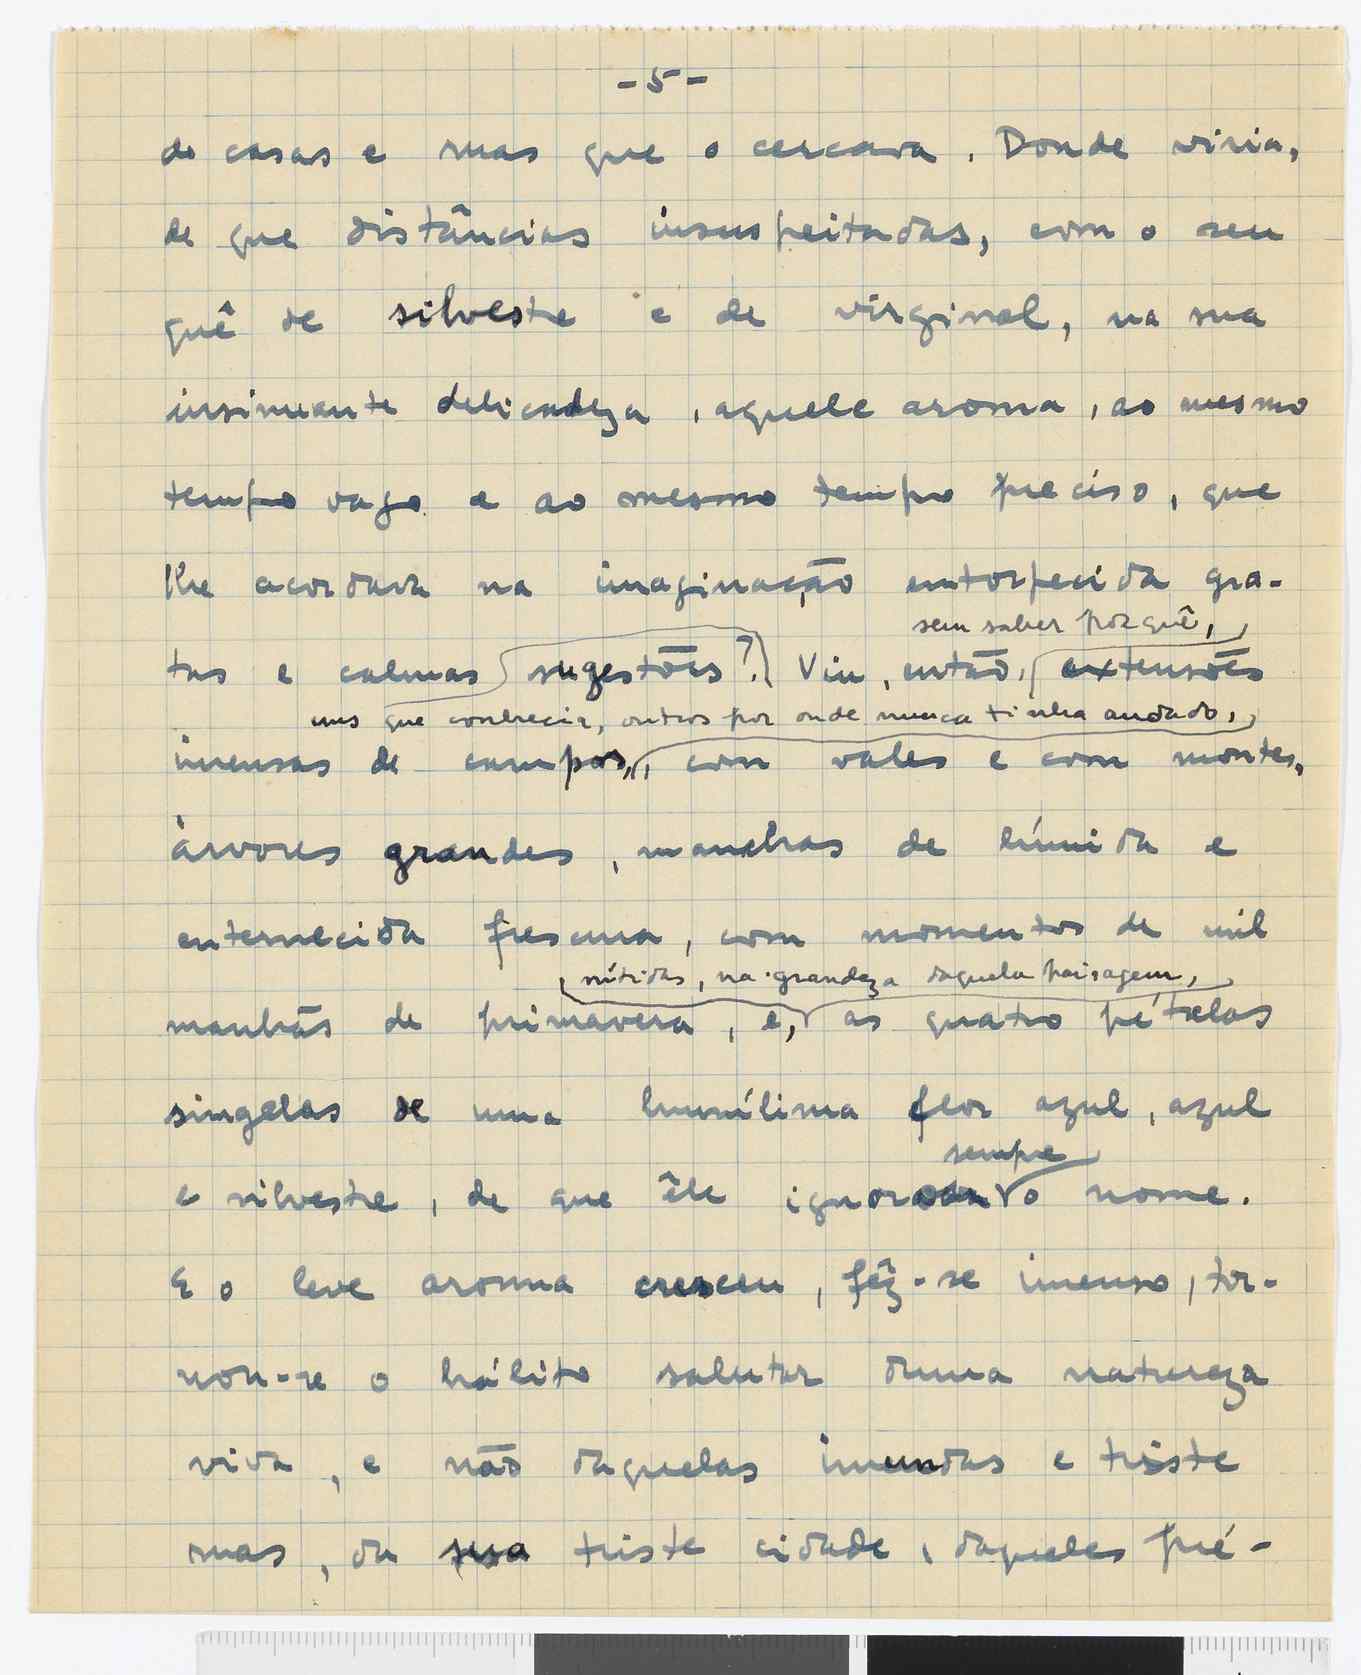 -5-
de casas e ruas que o cercava. Donde viria,
de que distâncias insuspeitadas, com o seu
quê de silvestre e de virginal, na sua
insinuante delicadeza, aquele aroma, ao mesmo
tempo vago e ao mesmo tempo preciso, que
lhe acordava na imaginação entorpecida gra-
sem saber porquê,
tas e calmas sugestões? Viu, então, extensões
uns que conhecia, outros por onde nunca tinha andado,
imensas de campos, com vales e com montes,
árvores grandes, manchas de húmida e
enternecida frescura, com momentos de mil
nítidas, na grandeza daquela paisagem,
manhãs de primavera, e, as quatro pétalas
singelas de uma humílima flor azul, azul
sempre
e silvestre, de que êle ignorara o nome.
E o leve aroma cresceu, fêz-se imenso, tor-
nou-se o hálito salutar duma natureza
viva, e não daquelas imundas e triste
ruas, da sua triste cidade, daqueles pré-